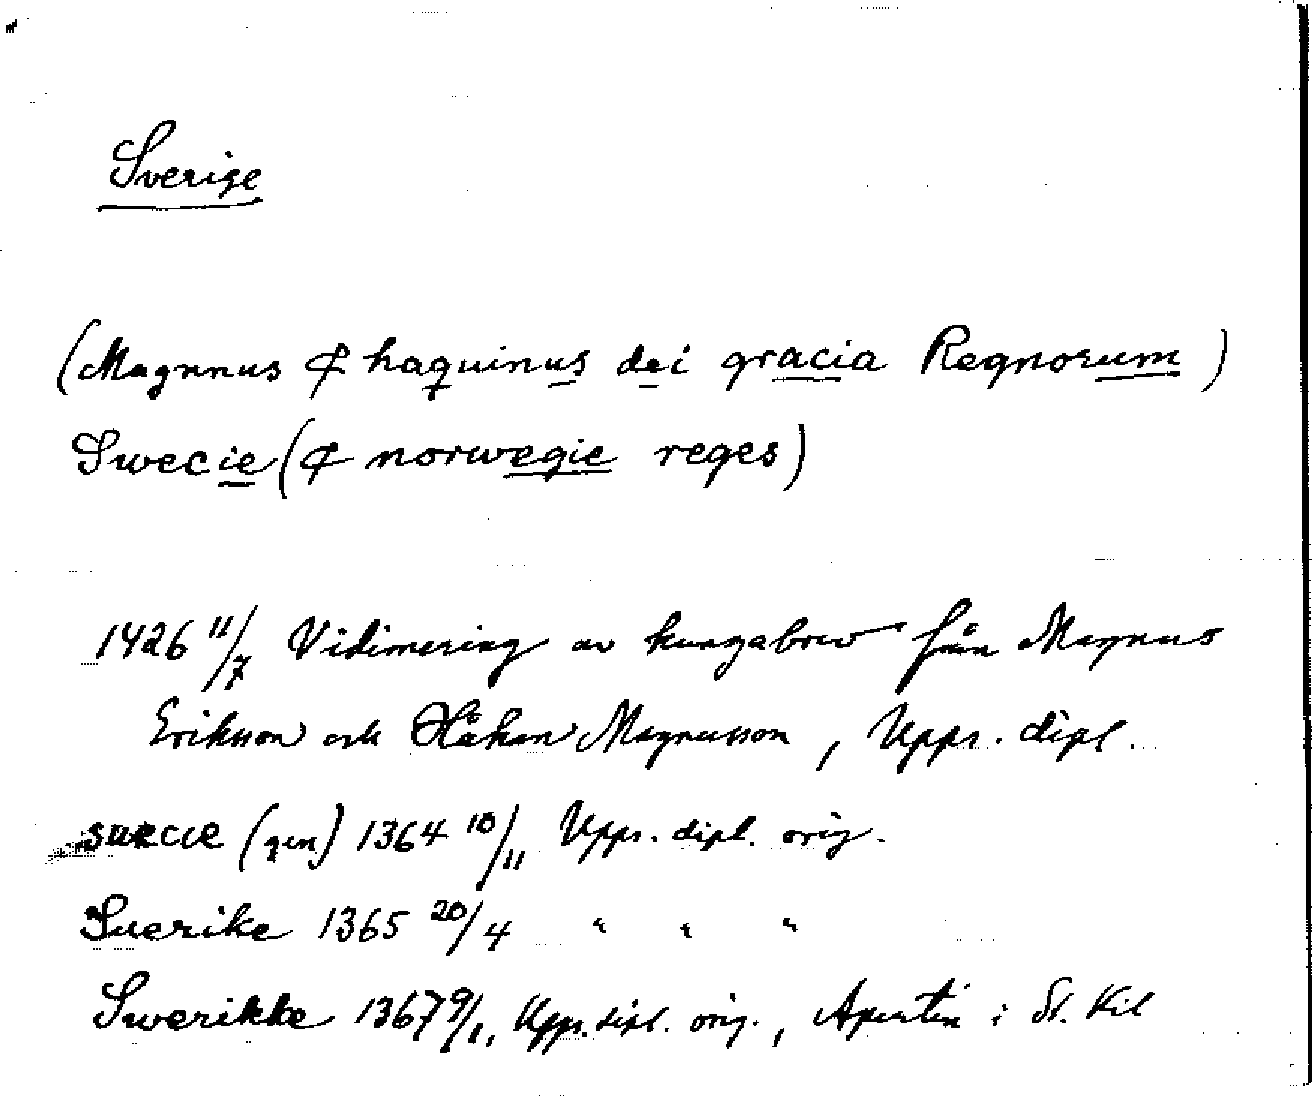 Sverige
(Magnnus & haquinus dei gracia Regnorum)
Swecie (& norwegie reges)
1426 11/7 Vidimering av kungabrev från Magnus
Erikson och Håkan Magnusson, Upps. dipl.
suecie (gen) 1364 10/11 Upps. dipl. orig.
Suerike 1365 20/4 " " "
Swerikke 1367 9/1, Upps. dipl. orig., Apertin i St. Kil